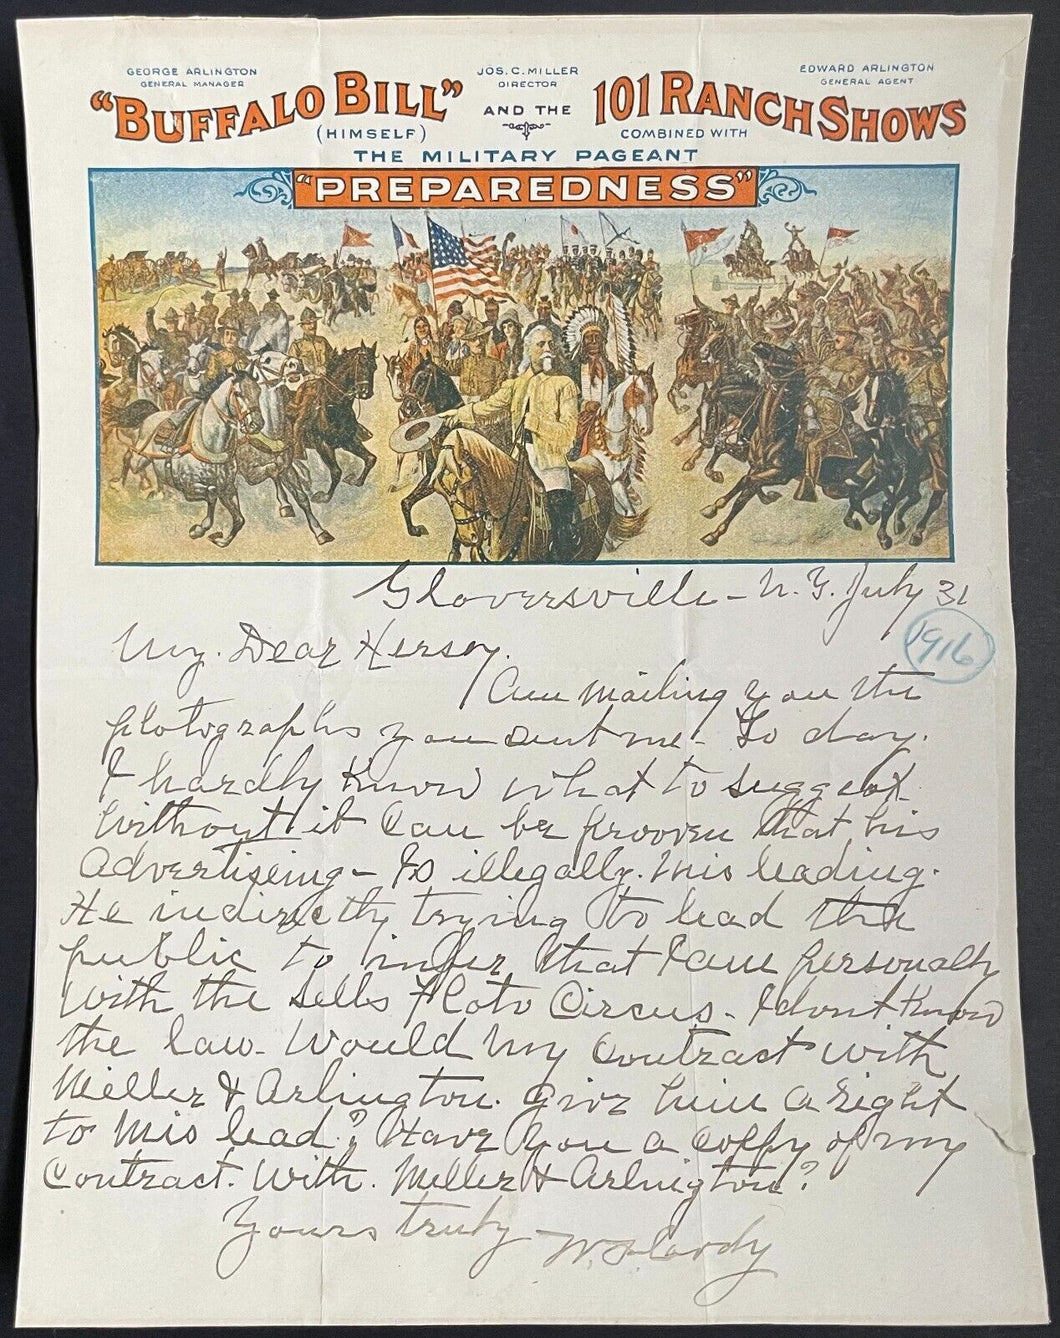 GEORGE ARLINGTON
GENERAL MANAGER
JOS. C. MILLER
DIRECTOR
EDWARD ARLINGTON
GENERAL AGENT
"BUFFALO BILL" AND THE 101 RANCH SHOWS
(HIMSELF) COMBINED WITH
THE MILITARY PAGEANT
"PREPAREDNESS"
Gloversville - N.Y. July 31
1916
My. Dear Hersey.
I am mailing you the
photographs you sent me - To day.
I hardly Know what to suggest
Without it can be prooven that his
advertiseing - Is illegally. Mis leading.
He indirectly trying to lead the
public to infer that I am personally
with the Sells Floto Circus - I dont Know
the law. Would my contract with
Miller & Arlington. Give him a right
to Mis lead? Have you a coppy of my
Contract. With. Miller & Arlington?
Yours truly
W. F. Cody